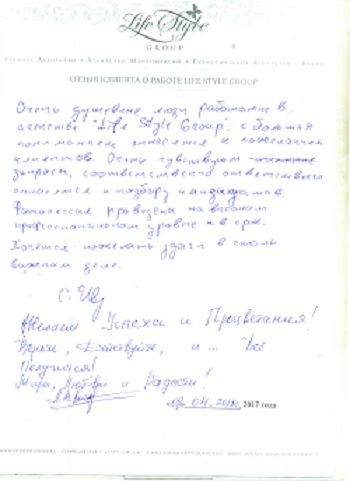 Life Style
GROUP
ОТЗЫВ КЛИЕНТА О РАБОТЕ LIFE STYLE GROUP
Очень душевные люди работают в
агентстве "Life Style Group"; с большим
пониманием относятся к пожеланиям
клиентов. Очень чувствуют
запросы, соответственно ответственно
относятся к подбору кандидатов.
проведена на высоком
профессиональном уровне и в срок.
Хочется пожелать удачи в столь
важном деле.
Желаем Успеха и Процветания!
Верьте, Действуйте, и ... Всё
Получится!
Мира, Любви и Радости!
04. 2017 года